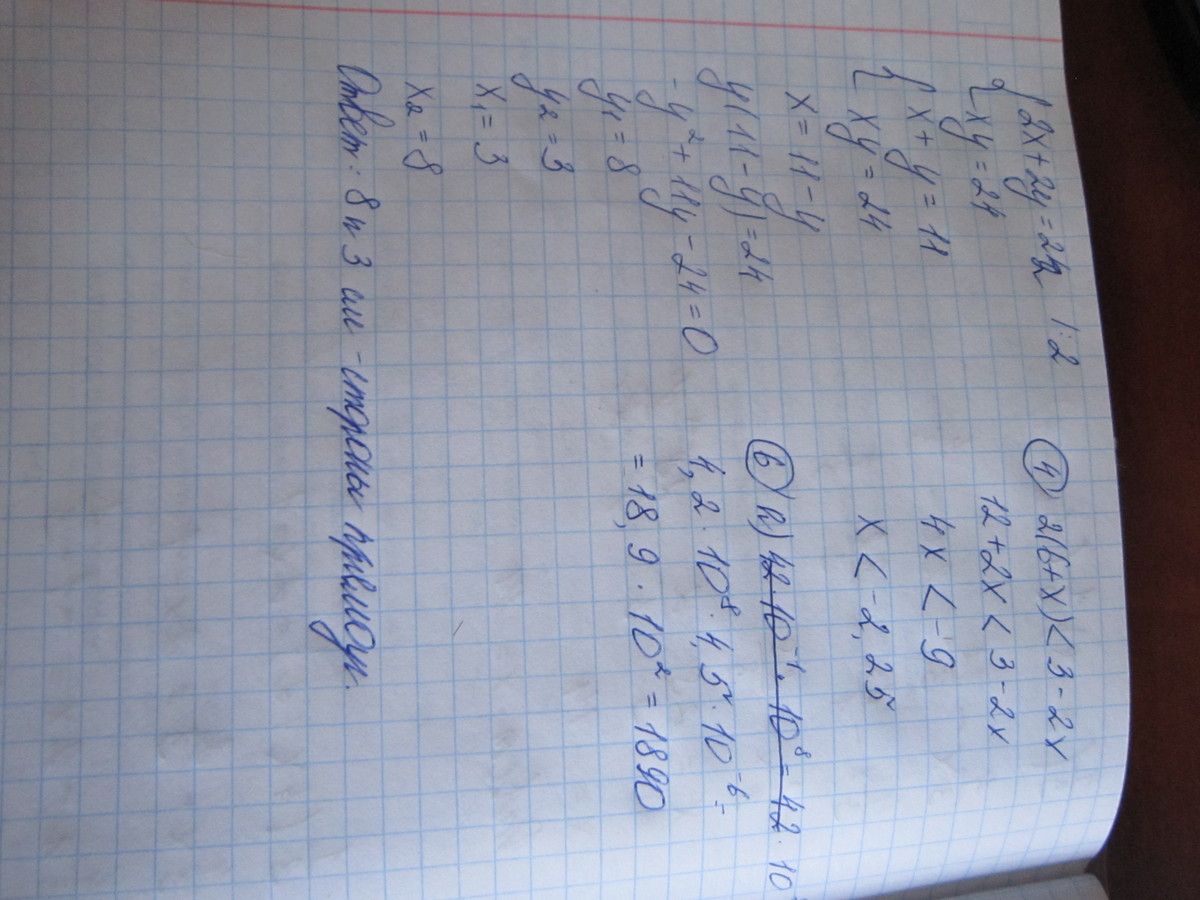 {2x+2y=22 |:2
{xy=24
{x+y=11
{xy=24
x=11-y
y(11-y)=24
-y²+11y-24=0
y₁=8
y₂=3
x₁=3
x₂=8
Ответ: 8 и 3 см - стороны прямоуг.
④ 2(6+x)<3-2x
12+2x<3-2x
4x<-9
x<-2,25
⑥ а) 42·10⁻¹·10⁸=42·10
4,2·10⁸·4,5·10⁻⁶=
=18,9·10²=1890